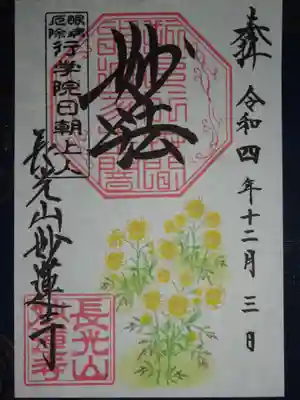 奉拝 令和四年十二月三日
妙法
眼病
厄除
行学院日朝上人
長光山妙蓮寺
長光山
妙蓮寺